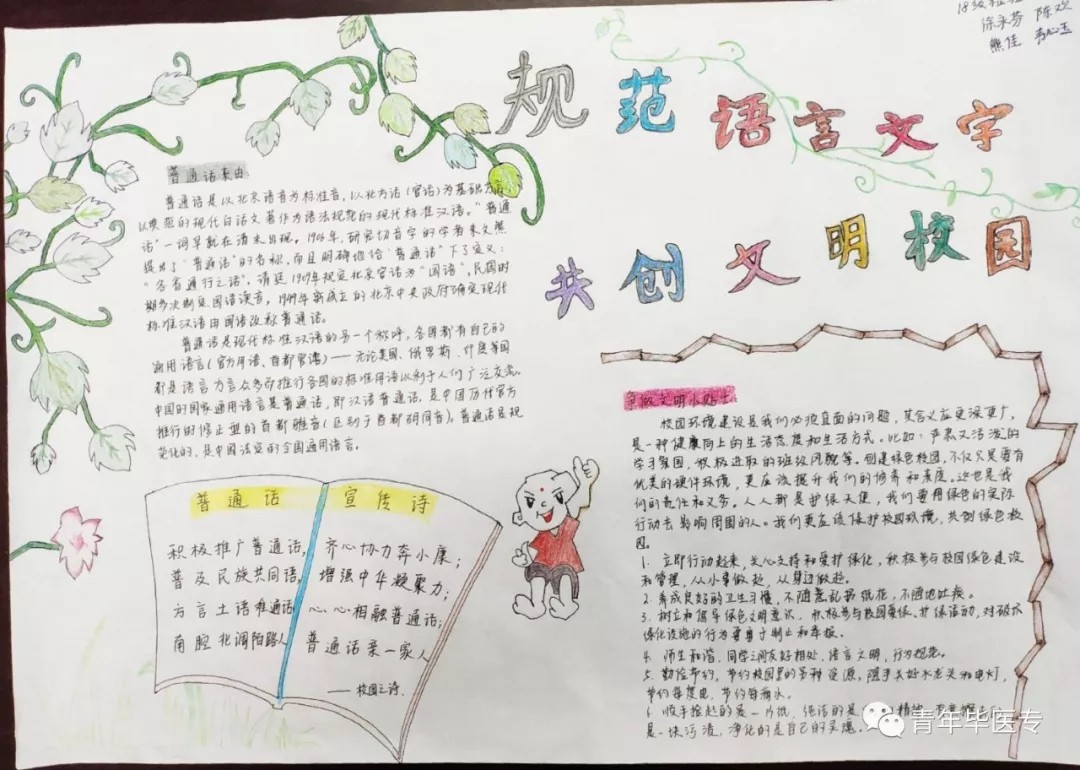 18级
徐永芬 陈欢
熊佳
规范语言文字
共创文明校园
普通话来由
普通话是以北京语音为标准音，以北方话（官话）为基础方言
以典范的现代白话文著作为语法规范的现代标准汉语。“普通
话”一词早就在清末出现。1906年，研究切音字的学者朱文熊
提出了“普通话”的名称，而且明确地给“普通话”下了定义：
“各省通行之话”，清廷1909年规定北京官话为“国语”，民国时
期多次制定国语读音。1949年新成立的北京中央政府确定现代
标准汉语由国语改称普通话。
普通话是现代标准汉语的另一个称呼，各国都有自己的
通用语言（官方用语、首都官话）——无论美国、俄罗斯、印度等国
都是语言方言众多而推行各国的标准用语以利于人们广泛交流。
中国的国家通用语言是普通话，即汉语普通话，是中国历代官方
推行时修正型的首都雅音（区别于首都胡同音）。普通话是规
范化的，是中国法定的全国通用语言。
普通话 宣传诗
积极推广普通话， 齐心协力奔小康；
普及民族共同语， 增强中华凝聚力；
方言土语难通话， 心心相融普通话；
南腔北调陌路人 普通话亲一家人
——校园之诗
争做文明小贴士
校园环境建设是我们必须直面的问题，其含义应更深更广，
是一种健康向上的生活态度和生活方式。比如：严肃又活泼的
学习氛围，积极进取的班级风貌等。创建绿色校园，不仅只是要有
优美的硬件环境，更应该提升我们的修养和素质。这也是我
们的责任和义务。人人都是护绿天使，我们要用绿色的实际
行动去影响周围的人。我们更应该保护校园环境，共创绿色校
园。
1. 立即行动起来，关心支持和爱护绿化，积极参与校园绿色建设
和管理，从小事做起，从身边做起。
2. 养成良好的卫生习惯，不随意乱扔纸花，不随地吐痰。
3. 树立和倡导绿色文明意识，积极参与校园环保、护绿活动，对破坏
绿化设施的行为要勇于制止和举报。
4. 师生和谐、同学之间友好相处，语言文明，行为规范。
5. 勤俭节约，节约校园里的另种资源，随手关好水龙头和电灯，
节约每度电，节约每滴水。
6. 你手捡起的是一片纸，纯洁的是 精神，
是一块污渍，净化的是自己的灵魂。
青年毕医专